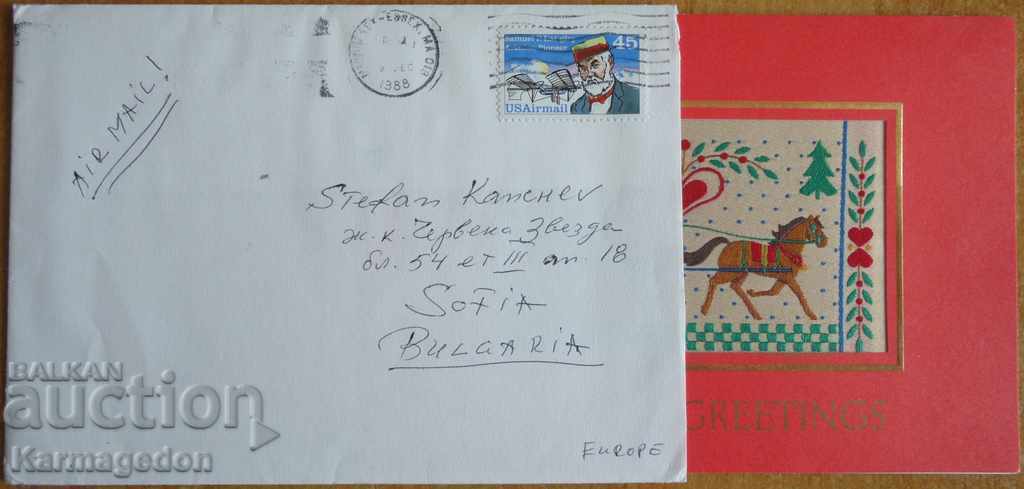 ESSEX, MA 018
DEC
1988
45
Pioneer
USAirmail
AIR MAIL!
Stefan Kanchev
ж.к. Червена Звезда
бл. 54 ет III ап. 18
SOFIA
BULGARIA
EUROPE
GREETINGS
BALKAN
auction
Karmagedon